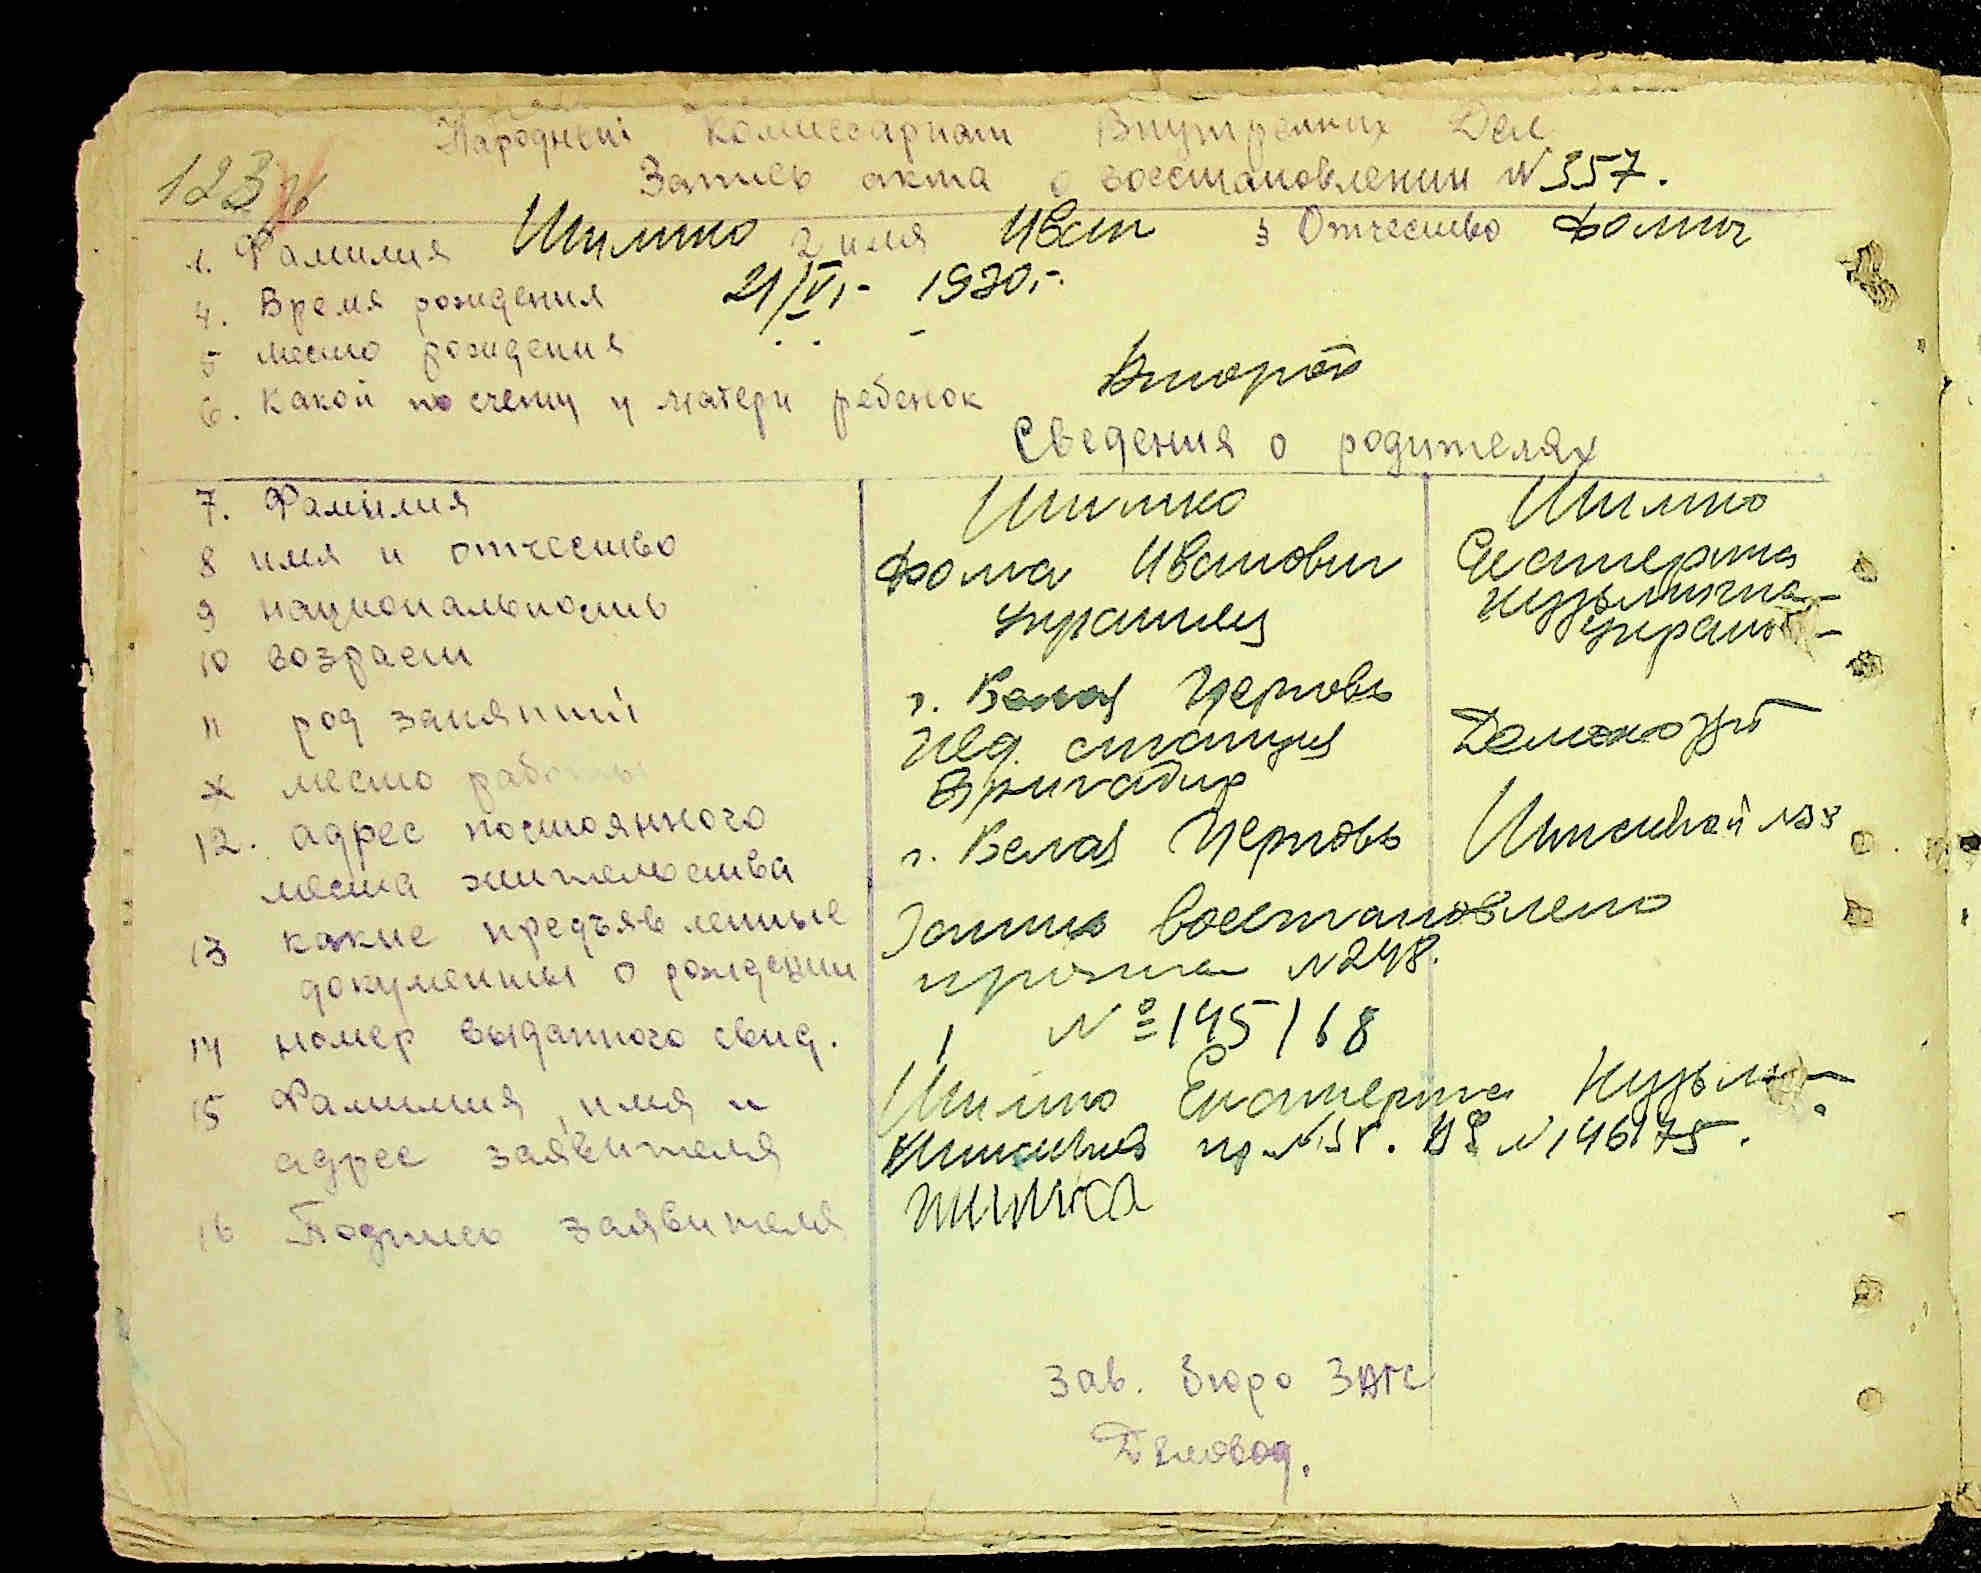 Народный Комиссариат Внутренних Дел
Запись акта о восстановлении № 357.
1. Фамилия Шимко 2 имя Иван 3 Отчество Фомич
4. Время рождения 21/VI,- 1930,-.
5 место рождения
6. Какой по счету у матери ребенок Второй
Сведения о родителях
7. Фамилия Шимко Шимко
8 имя и отчество Фома Иванович Екатерина Кузьминична
9 национальность украинец украин
10 возраст
11 род занятий г. Белая Церковь
станция Домохоз
х место работы Бригадир
12. адрес постоянного г. Белая Церковь
места жительства
13 какие предъявленные Запись восстановлено
документы о рождении №248.
14 номер выданного свид. № 145/68
15 Фамилия, имя и Шимко Екатерина Кузьм
адрес заявителя № 146175.
16 Подпись заявителя Шимко
Зав. Бюро ЗАГС
Деловод.